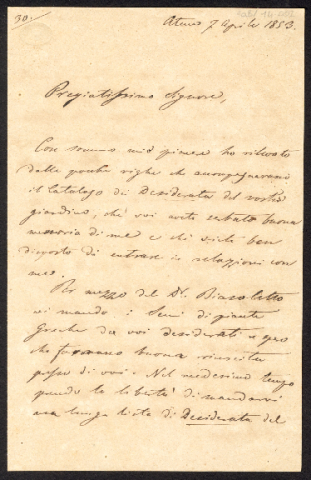 30.
Atene 7 Aprile 1853.
Pregiatissimo Signore,
Con sommo mio piacere ho rilevato
dalle poche righe che accompagnavano
il Catalogo dei Desiderata del vostro
giardino, che voi avete serbato buona
memoria di me e che siete ben
disposto di entrare in relazioni con
me.
Per mezzo del Dr. Biasoletto
vi mando i semi di piante
Greche da voi desiderati e spero
che faranno buona riuscita
presso di voi. Nel medesimo tempo
prendo la libertà di mandarvi
una lunga lista di Desiderata del